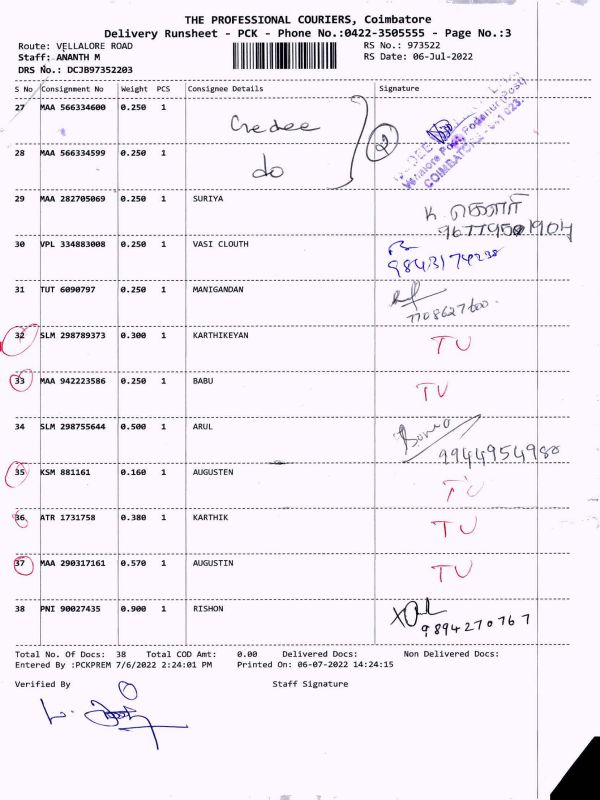 THE PROFESSIONAL COURIERS, Coimbatore
Delivery Runsheet - PCK - Phone No.:0422-3505555 - Page No.:3
Route: VELLALORE ROAD RS No.: 973522
Staff: ANANTH M RS Date: 06-Jul-2022
DRS No.: DCJB97352203
S No Consignment No Weight PCS Consignee Details Signature
27 MAA 566334600 0.250 1
28 MAA 566334599 0.250 1 do
2
COIMBATORE - 641 023.
29 MAA 282705069 0.250 1 SURIYA
30 VPL 334883008 0.250 1 VASI CLOUTH
9843174238
31 TUT 6090797 0.250 1 MANIGANDAN
7708627600
32 SLM 298789373 0.300 1 KARTHIKEYAN TU
33 MAA 942223586 0.250 1 BABU TU
34 SLM 298755644 0.500 1 ARUL
9944954980
35 KSM 881161 0.160 1 AUGUSTEN TU
36 ATR 1731758 0.380 1 KARTHIK TU
37 MAA 290317161 0.570 1 AUGUSTIN TU
38 PNI 90027435 0.900 1 RISHON
9894270767
Total No. Of Docs: 38 Total COD Amt: 0.00 Delivered Docs: Non Delivered Docs:
Entered By :PCKPREM 7/6/2022 2:24:01 PM Printed On: 06-07-2022 14:24:15
Verified By Staff Signature